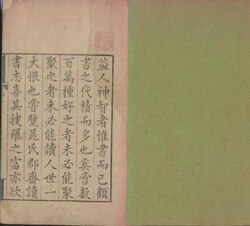 益人神智者惟書而已顧
書之代積而多也奚啻數
百萬種好之者未必能聚
聚之者未必能讀人世一
大恨也嘗覽晁氏郡齋讀
書志喜其搜羅之富亦欲